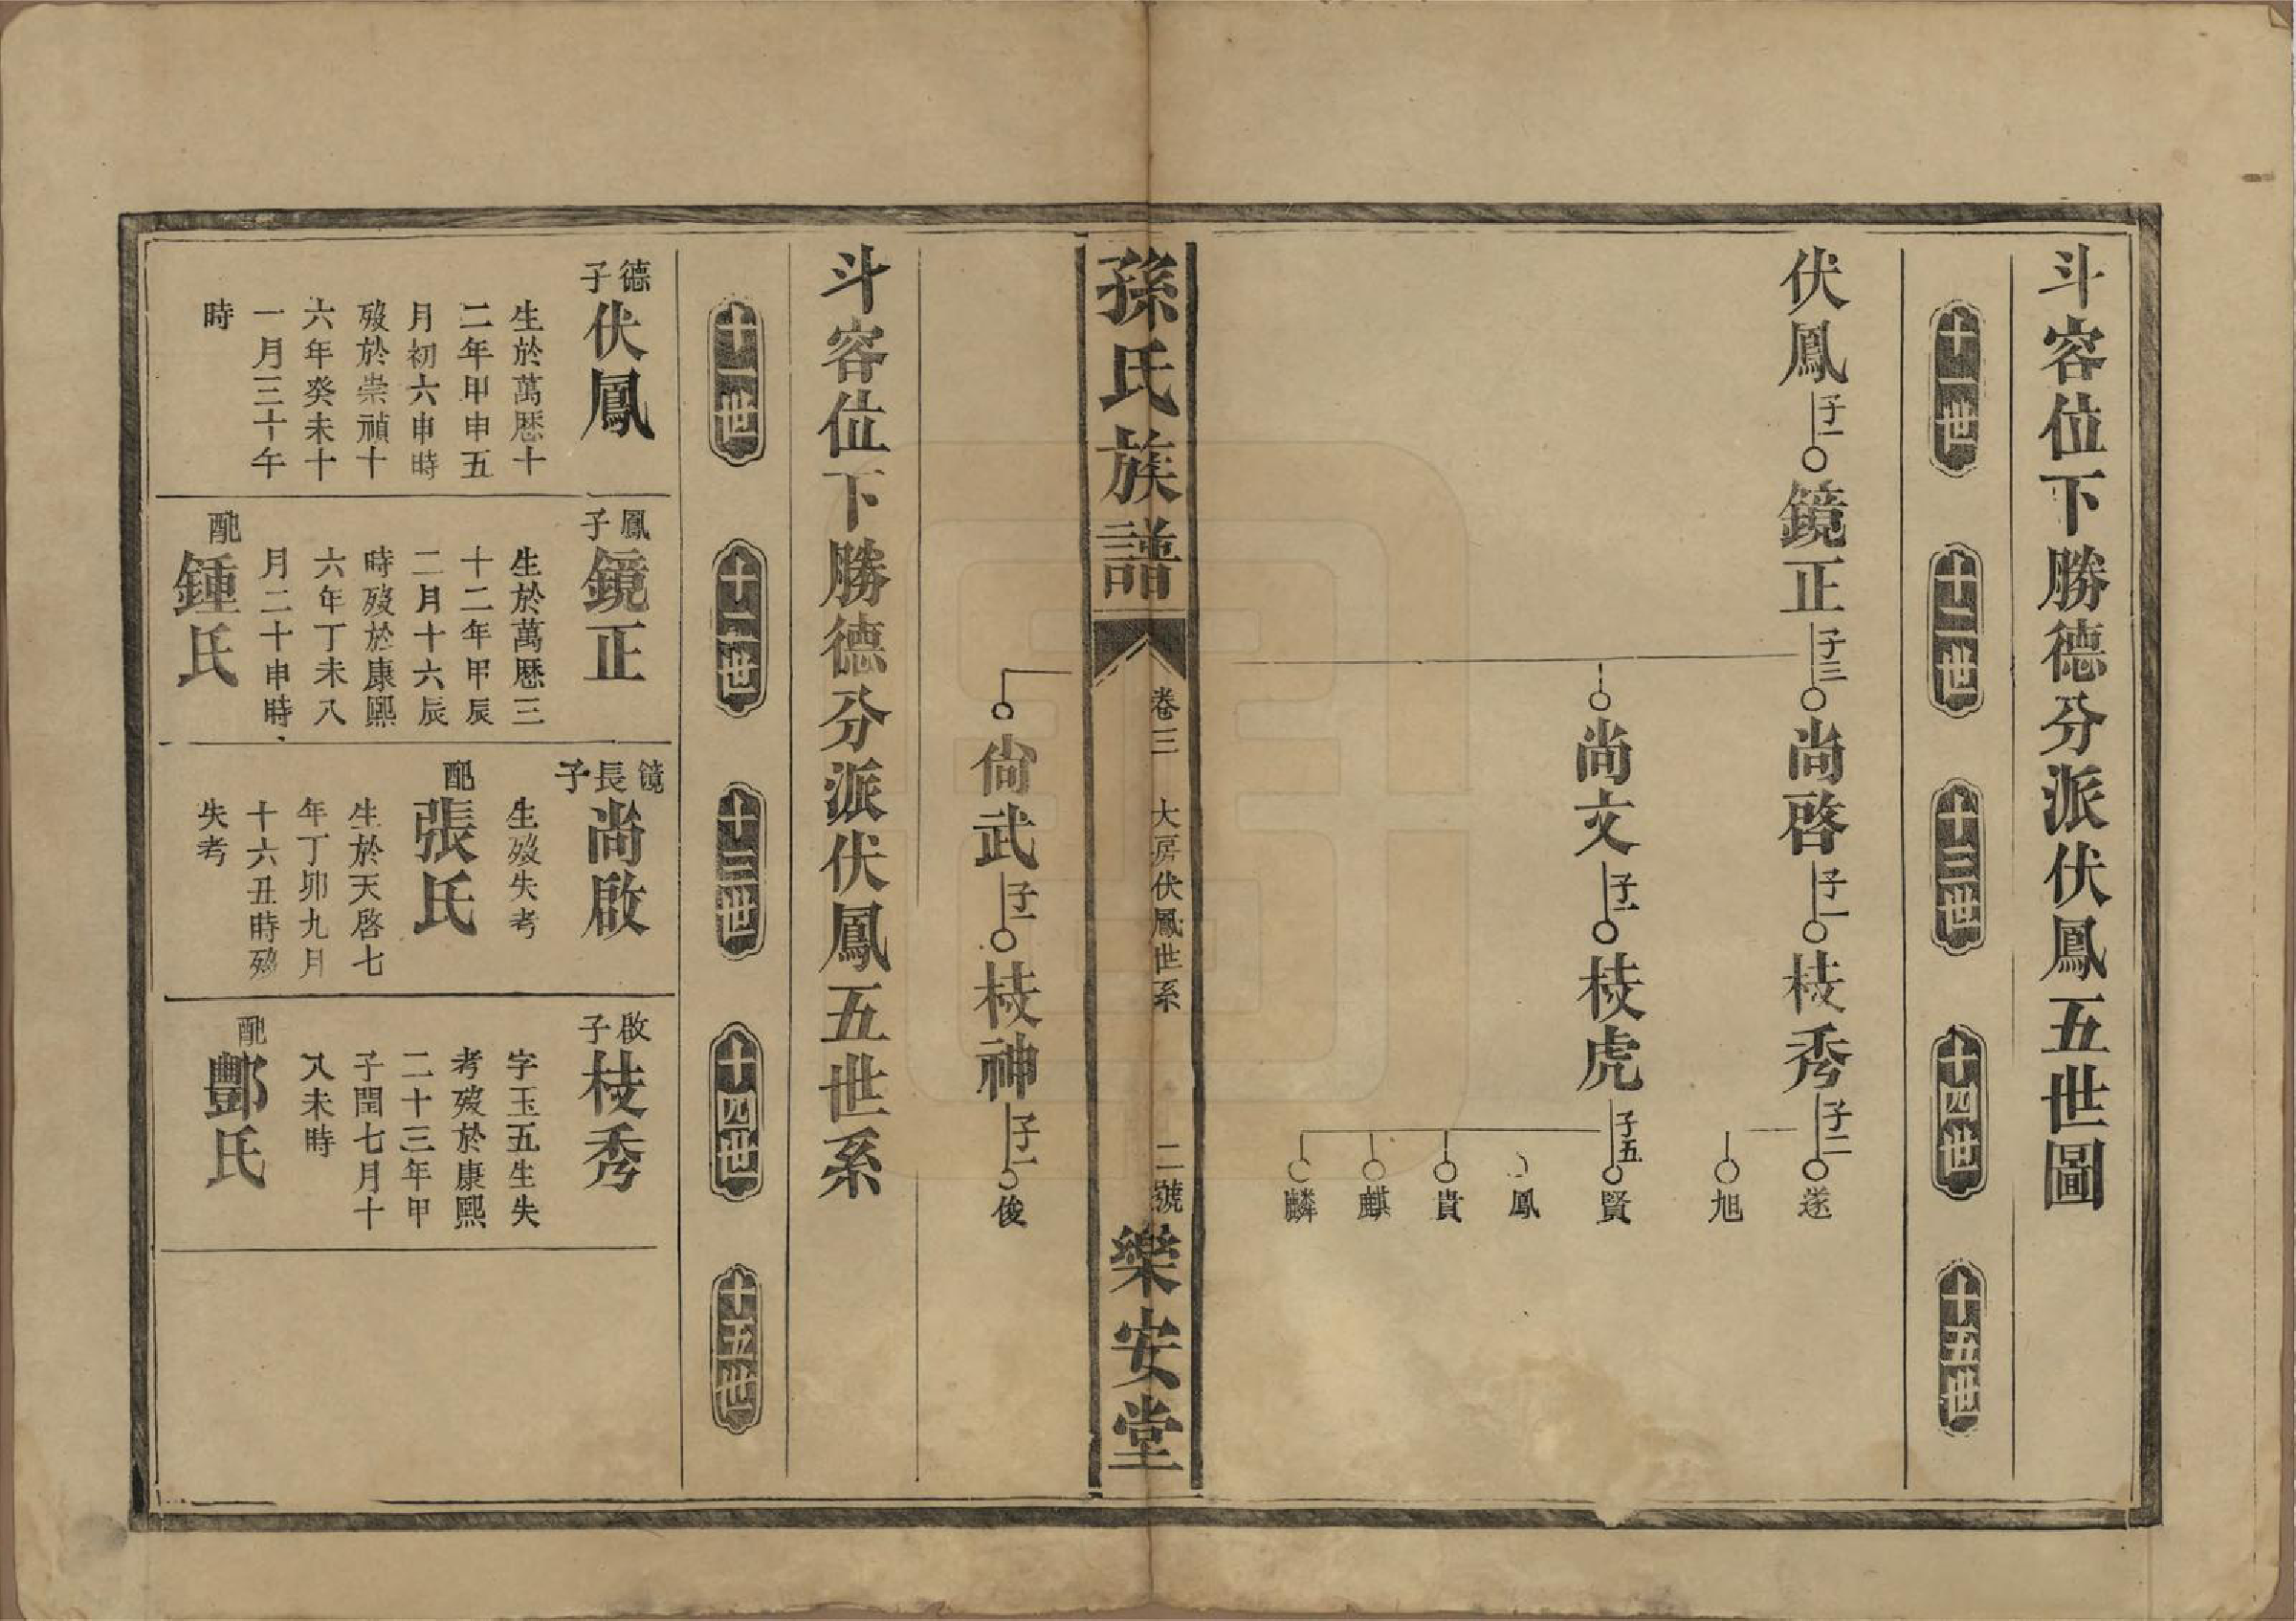 斗容位下勝德分派伏鳳五世圖
十一世
十二世
十三世
十四世
十五世
伏鳳 子一 鏡正 子三 尚啓 子一 枝秀 子二 遂
旭
尚文 子一 枝虎 子五 賢
鳳
貴
麒
麟
孫氏族譜 卷三 大房伏鳳世系 二號 樂安堂
尚武 子一 枝神 子一 俊
斗容位下勝德分派伏鳳五世系
十一世
十二世
十三世
十四世
十五世
德子 伏鳳
生於萬歷十
二年甲申五
月初六申時
歿於崇禎十
六年癸未十
一月三十午
時
鳳子 鏡正
生於萬歷三
十二年甲辰
二月十六辰
時歿於康熙
六年丁未八
月二十申時
配 鍾氏
鏡長子 尚啟
生歿失考
配 張氏
生於天啓七
年丁卯九月
十六丑時歿
失考
啟子 枝秀
字玉五生失
考歿於康熙
二十三年甲
子閏七月十
八未時
配 酆氏